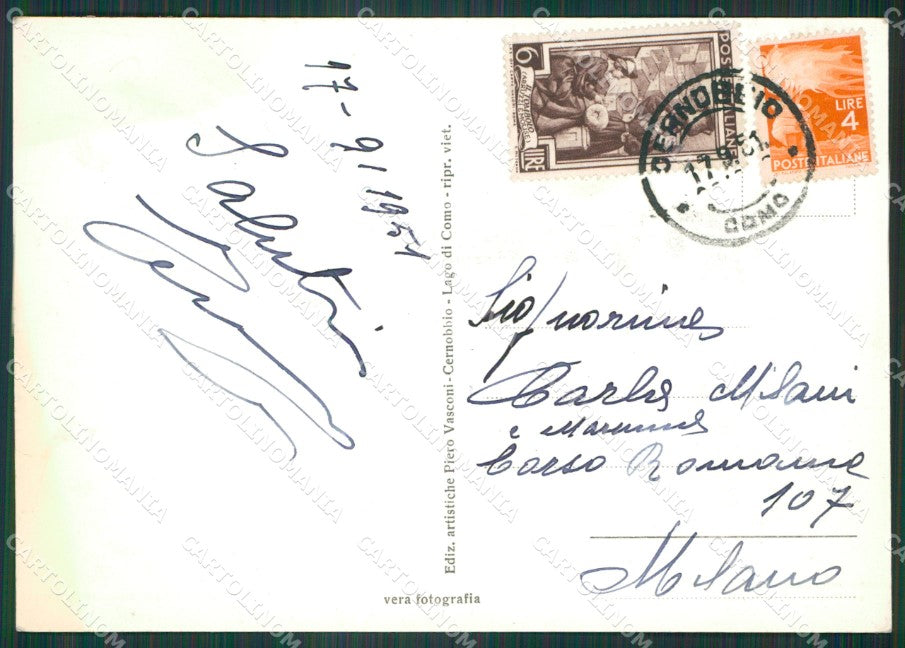 17-9 1951
Saluti
Ediz. artistiche Piero Vasconi-Cernobbio - Lago di Como - ripr. viet.
vera fotografia
6
LIRE
POSTE ITALIANE
LIRE
4
POSTE ITALIANE
CERNOBBIO
17.9.51
COMO
Signorina
Carla Milani
e Mamma
Corso Romana
107
Milano
CARTOLINOMANIA